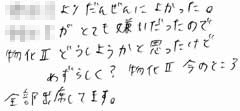 よりだんぜんによかった。
がとても嫌いだったので
物化Ⅱ どうしようかと思ったけど
めずらしく? 物化Ⅱ 今のところ
全部出席してます。